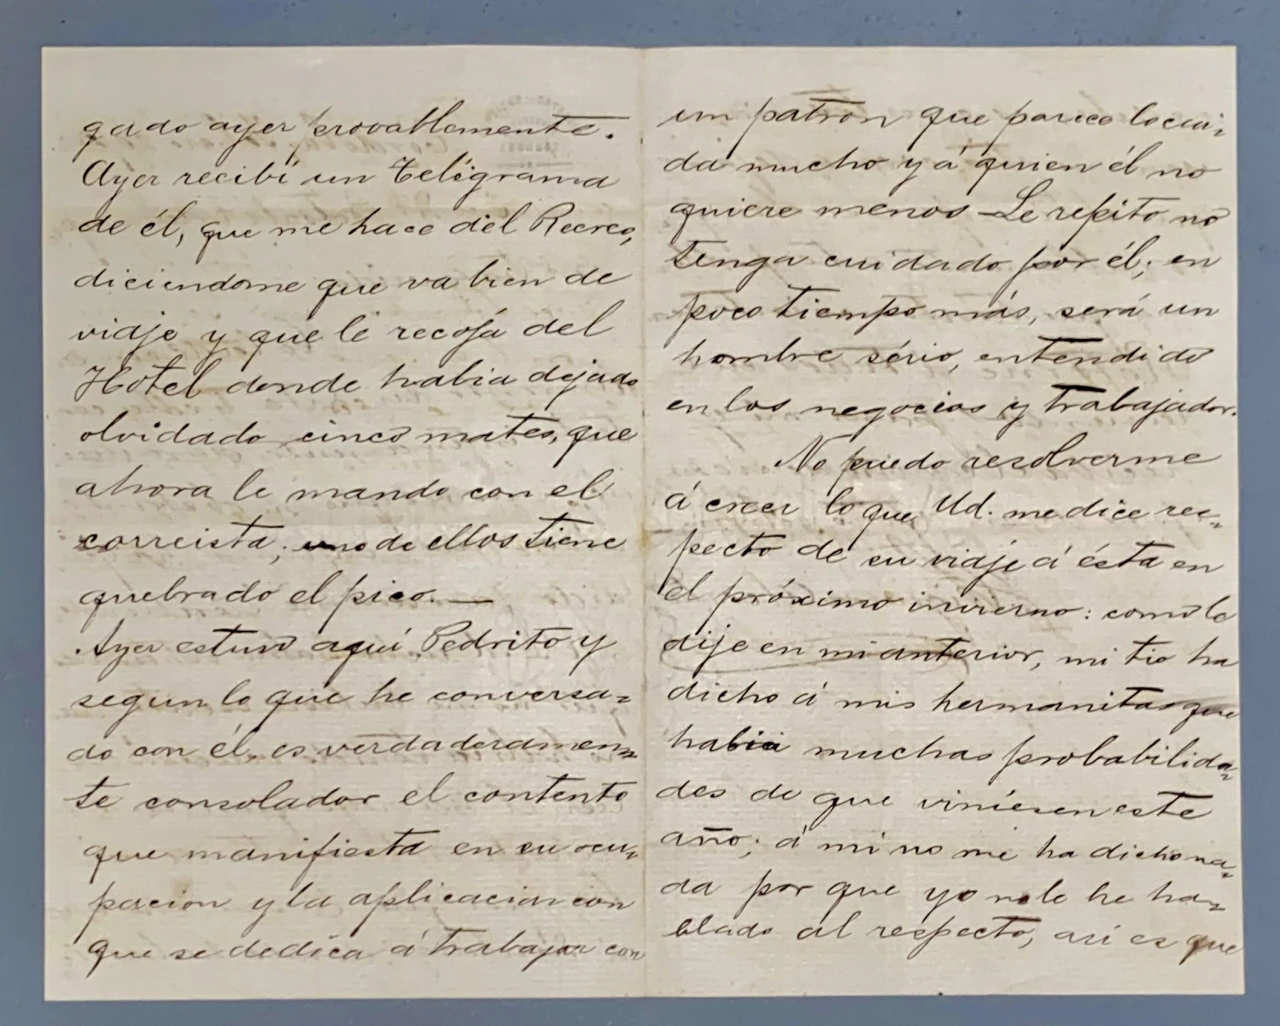 gado ayer provablemente.
Ayer recibí un telégrama
de él, que me hace del Recreo,
diciendome que va bien de
viaje y que le recoja del
Hotel donde habia dejado
olvidado cinco mates, que
ahora le mando con el
correista; uno de ellos tiene
quebrado el pico.—
Ayer estuvo aquí Pedrito y
segun lo que he conversa=
do con él, es verdaderamen=
te consolador el contento
que manifiesta en su ocu=
pacion y la aplicacion con
que se dedica á trabajar con
un patrón que parece lo cui=
da mucho y á quien él no
quiere menos—Le repito no
tenga cuidado por él; en
poco tiempo más, será un
hombre sério, entendido
en los negocios y trabajador.
No puedo resolverme
á creer lo que Ud. me dice res=
pecto de su viaje á ésta en
el próximo invierno: como le
dije en mi anterior, mi tio ha
dicho á mis hermanitas que
habia muchas probabilida=
des de que viniesen este
año; á mí no me ha dicho na=
da por que yo no le he ha=
blado al respecto, asi es que